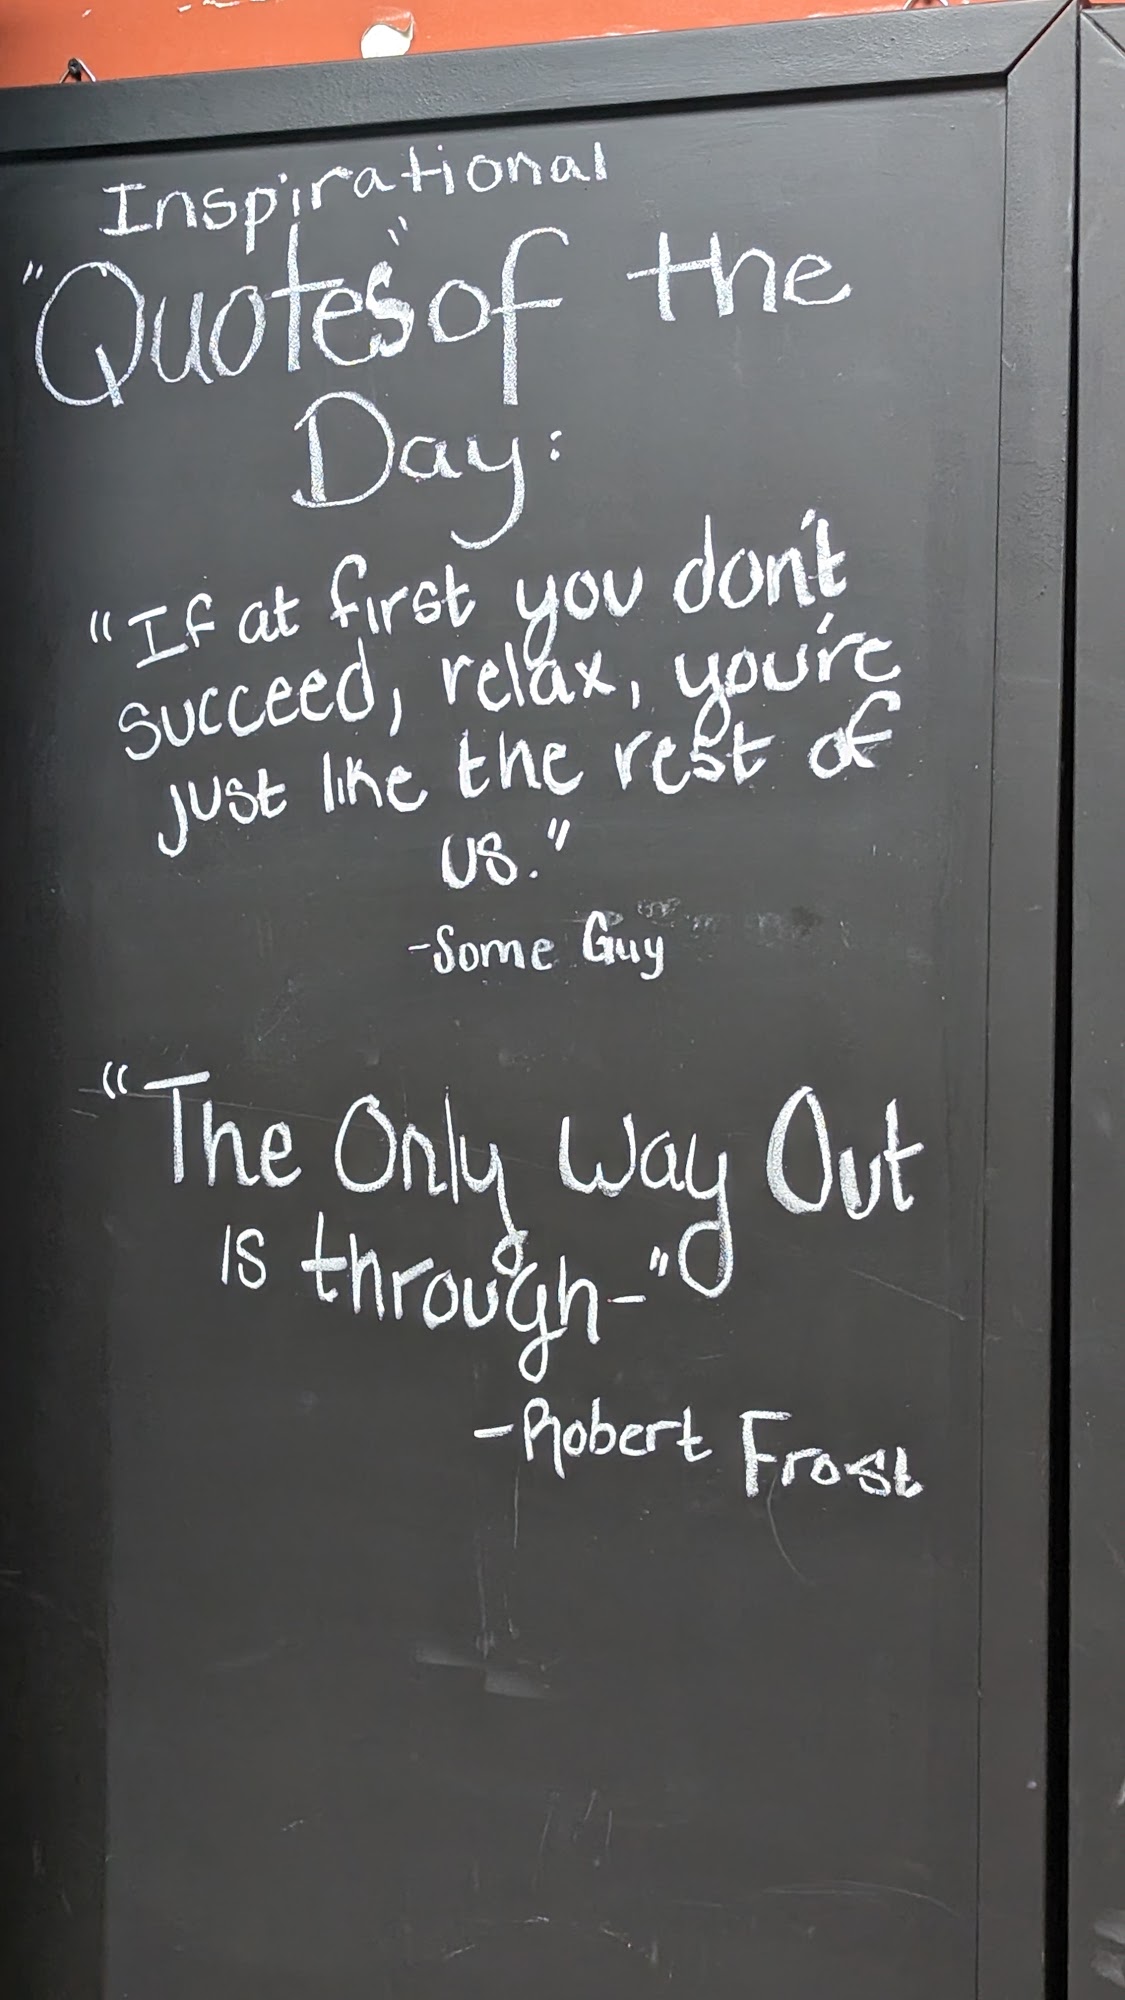 Inspirational
"Quotes" of the
Day:
"If at first you don't
succeed, relax, you're
just like the rest of
us."
-Some Guy
"The Only Way Out
is through-"
-Robert Frost